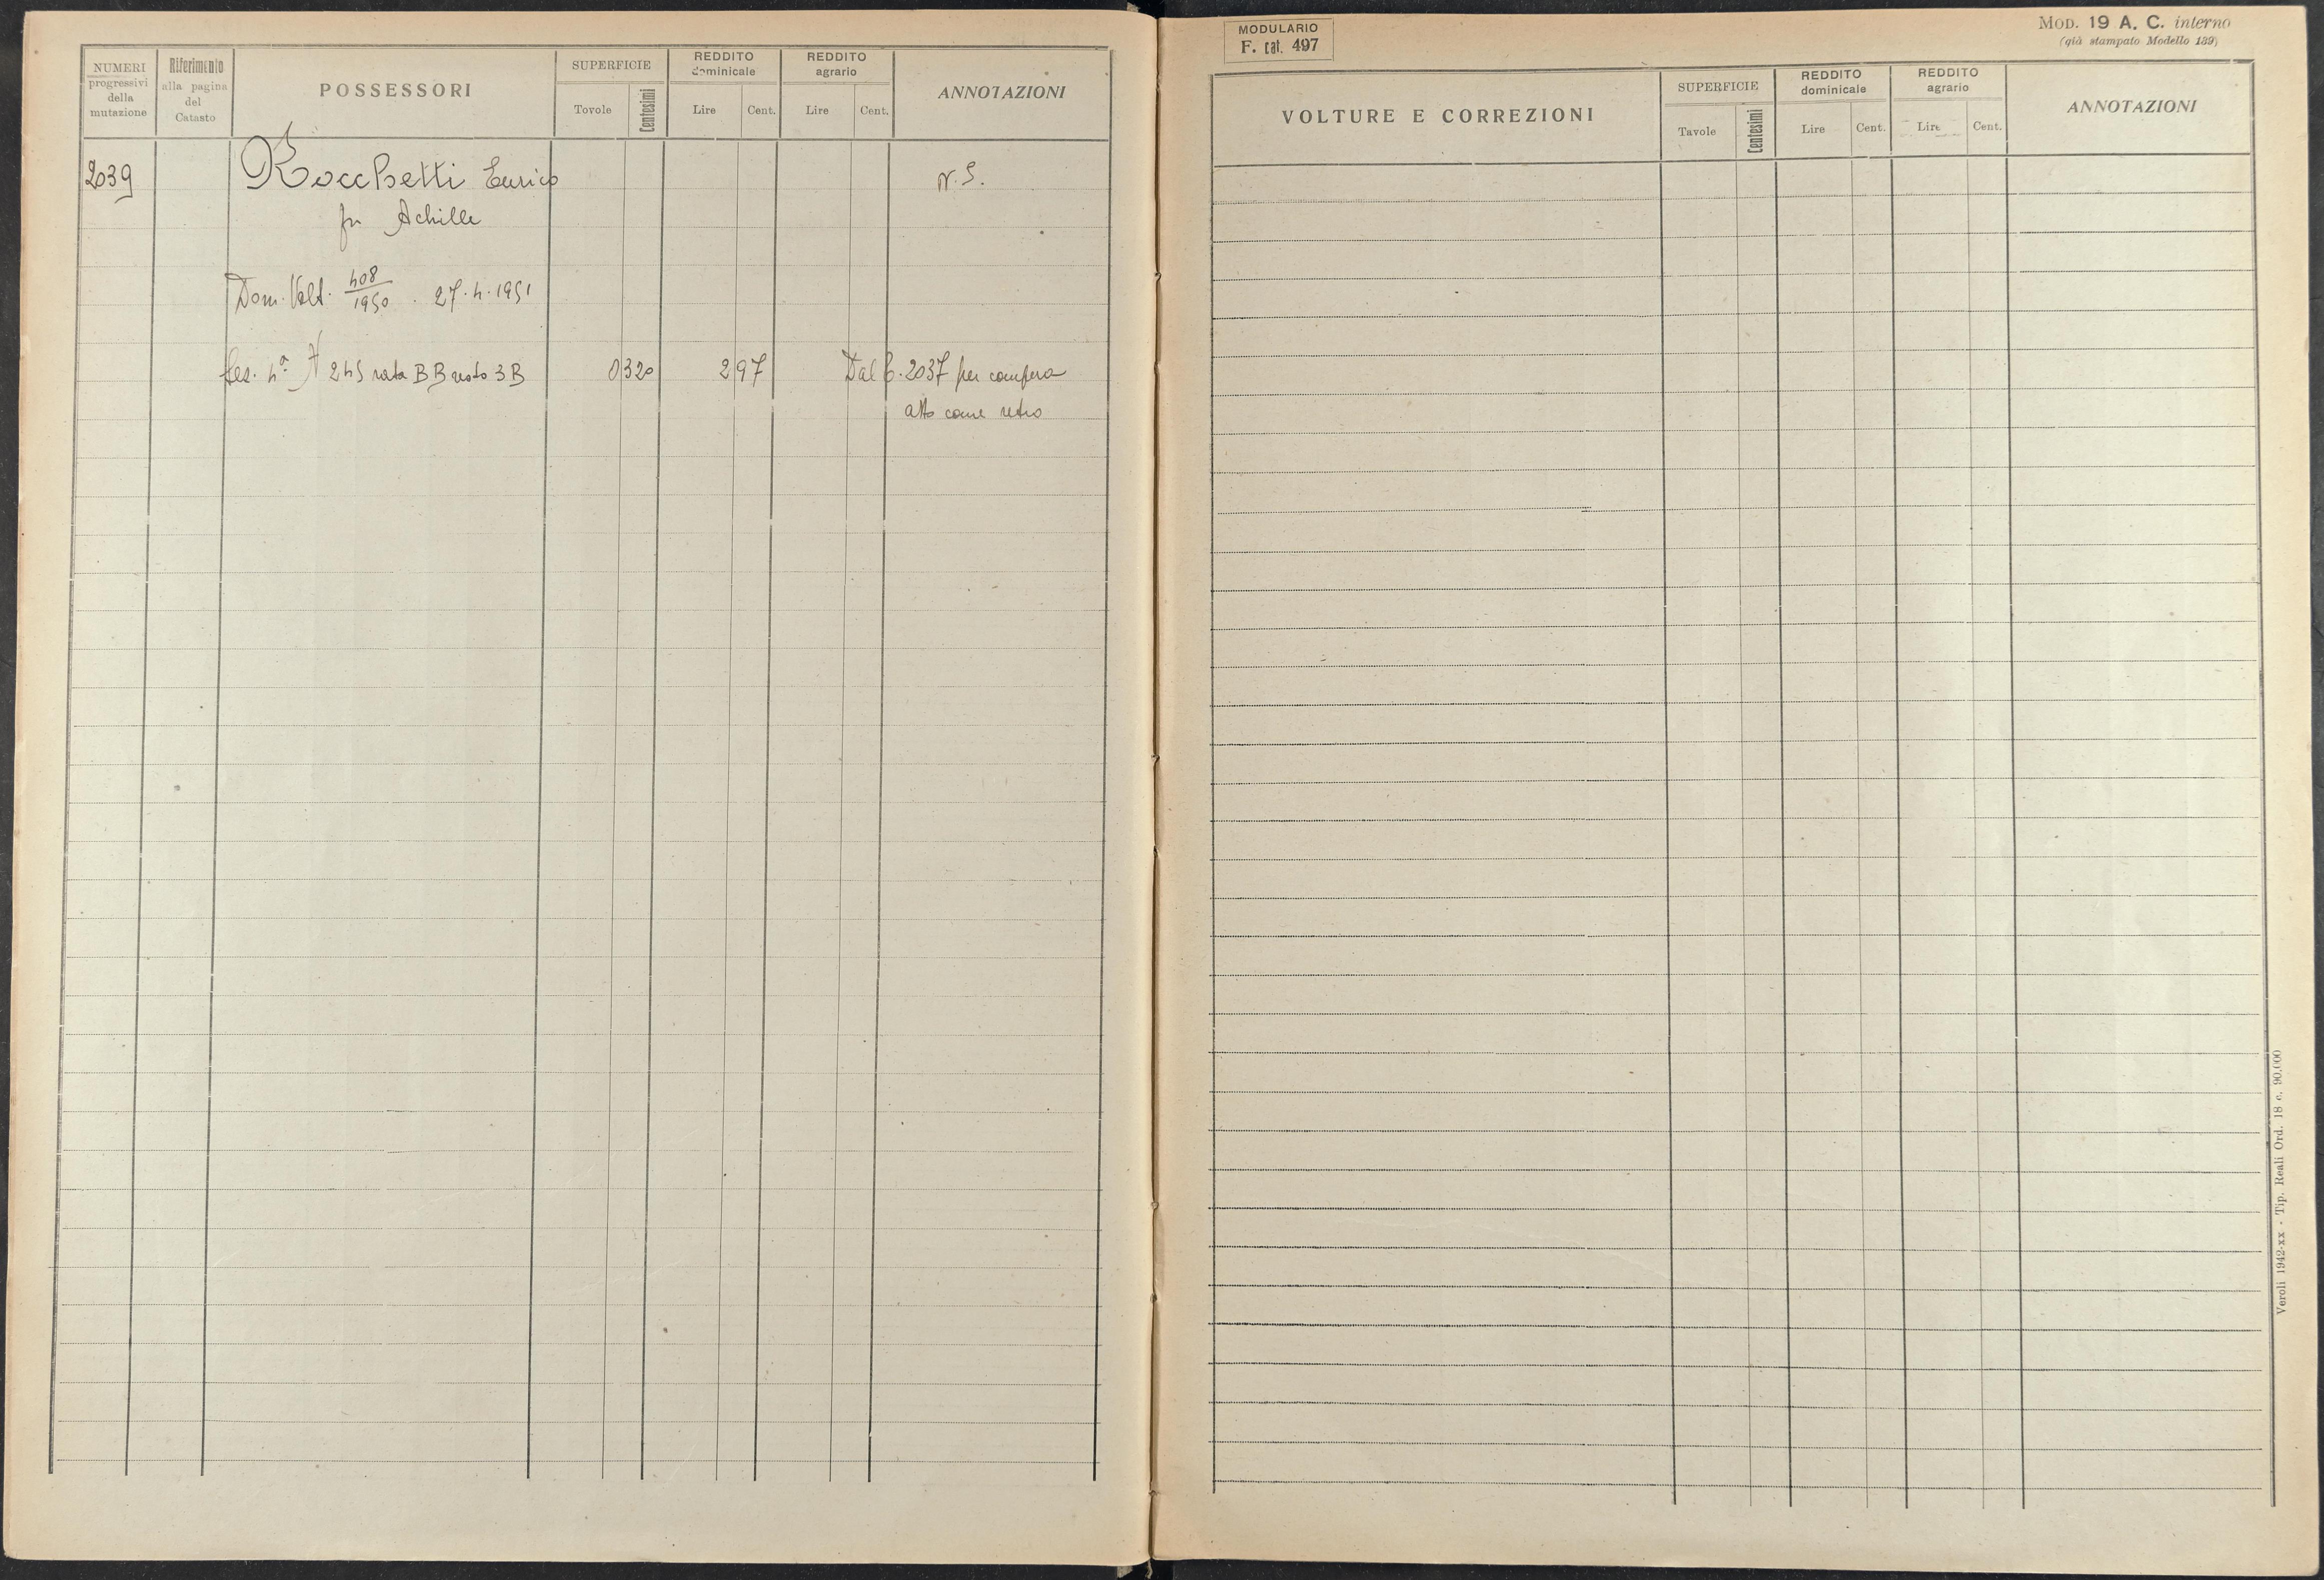 NUMERI
progressivi
della
mutazione
Riferimento
alla pagina
del
Catasto
POSSESSORI
SUPERFICIE
Tovole
Centesimi
REDDITO
dominicale
Lire
Cent.
REDDITO
agrario
Lire
Cent.
ANNOTAZIONI
2039
Rocchetti Enrico
N.S.
fu Achille
Dom. Volt. 408/1950 . 27.4.1951
Sez. 4ª N 245 rata BB resto 3B
0 320
2 97
Dal C. 2037 per compera
atto come retro
MODULARIO
F. cat. 497
MOD. 19 A. C. interno
(già stampato Modello 139)
VOLTURE E CORREZIONI
SUPERFICIE
Tavole
Centesimi
REDDITO
dominicale
Lire
Cent.
REDDITO
agrario
Lire
Cent.
ANNOTAZIONI
Veroli 1942-xx - Tip. Reali Ord. 18 c. 90.000